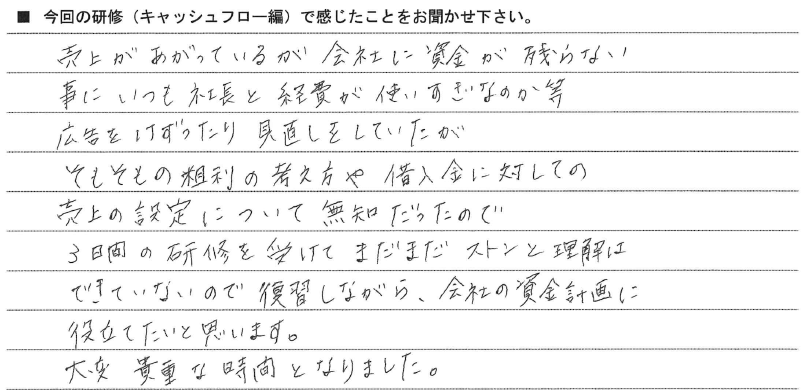 ■ 今回の研修（キャッシュフロー編）で感じたことをお聞かせ下さい。
売上があがっているが会社に資金が残らない
事にいつも社長と経費が使いすぎなのか等
広告をけずったり見直しをしていたが
そもそもの粗利の考え方や借入金に対しての
売上の設定について無知だったので
3日間の研修を受けてまだまだストンと理解は
できていないので復習しながら、会社の資金計画に
役立てたいと思います。
大変貴重な時間となりました。